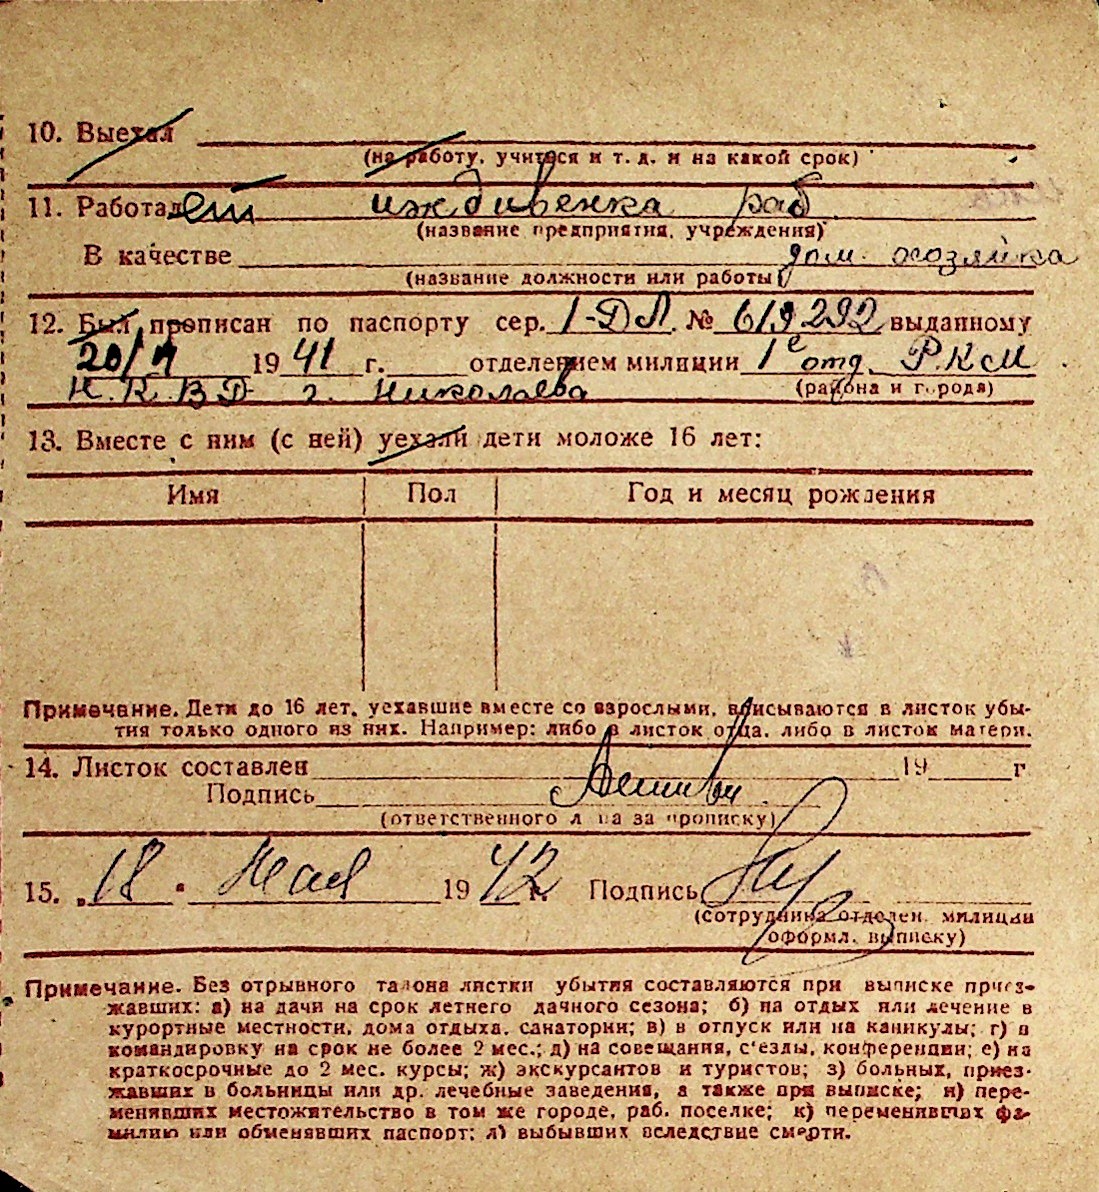 10. Выехал
(на работу, учиться и т. д. и на какой срок)
11. Работает иждивенка раб
(название предприятия, учреждения)
В качестве дом. хозяйка
(название должности или работы)
12. Был прописан по паспорту сер. I-ДЛ. № 619292 выданному
20/ 1941 г. отделением милиции 1е отд. Р.К.М
Н.К.В.Д г. Николаева (района и города)
13. Вместе с ним (с ней) уехали дети моложе 16 лет:
Имя Пол Год и месяц рождения
Примечание. Дети до 16 лет, уехавшие вместе со взрослыми, вписываются в листок убы-
тия только одного из них. Например: либо в листок отца, либо в листок матери.
14. Листок составлен 19 г
Подпись
(ответственного лица за прописку)
15. „18" Мая 1942 г. Подпись
(сотрудника отделен. милиции
оформл. выписку)
Примечание. Без отрывного талона листки убытия составляются при выписке приез-
жавших: а) на дачи на срок летнего дачного сезона; б) на отдых или лечение в
курортные местности, дома отдыха, санатории; в) в отпуск или на каникулы; г) в
командировку на срок не более 2 мес.; д) на совещания, с'езды, конференции; е) на
краткосрочные до 2 мес. курсы; ж) экскурсантов и туристов; з) больных, приез-
жавших в больницы или др. лечебные заведения, а также при выписке; и) пере-
менявших местожительство в том же городе, раб. поселке; к) переменивших фа-
милию или обменявших паспорт; л) выбывших вследствие смерти.